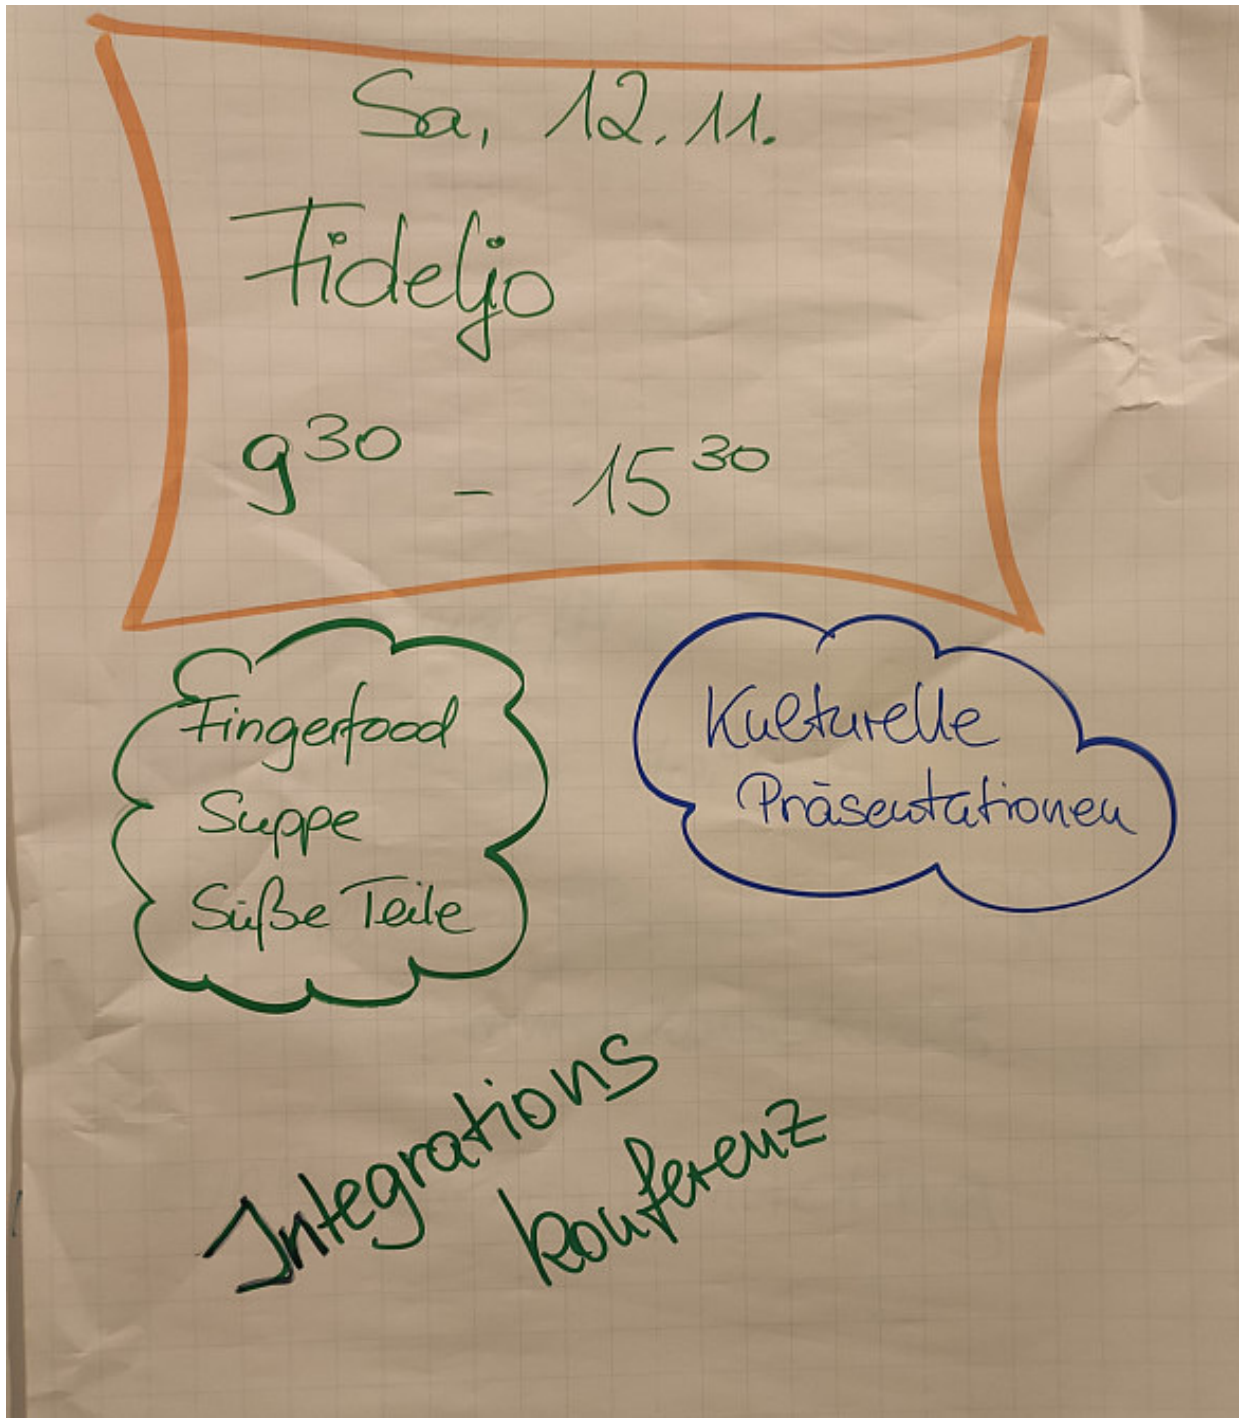 Sa, 12.11.
Fideljo
9³⁰ - 15³⁰
Fingerfood
Suppe
Süße Teile
Kulturelle
Präsentationen
Integrations
konferenz